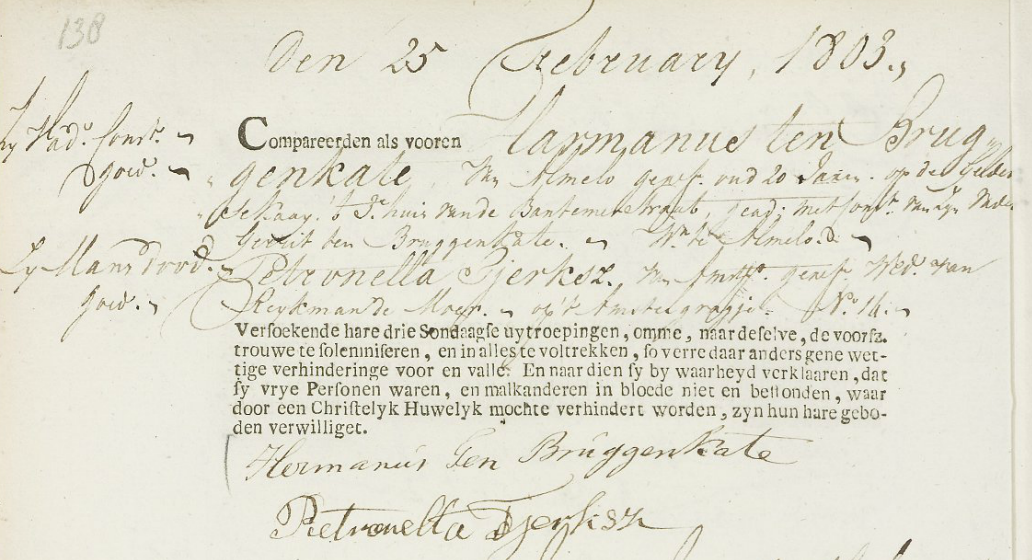 138
Den 25 February, 1803.
Compareerden als vooren Harmanus ten Brug=
genkate, van Almelo geref. oud 20 Jaren. op de Gelder
se Kaay. 't 3e huis van de Bantemerstraat, geads: met
Gerrit ten Bruggenkate. te Almelo.
Zy Mans dood. Petronella Tjerksz, van Amst. geref. Wed. van
goed. Reykman de op 't No. 14.
Versoekende hare drie Sondaagse uytroepingen, omme, naar deselve, de voorsz.
trouwe te solemniseren, en in alles te voltrekken, so verre daar anders gene wet-
tige verhinderinge voor en valle: En naar dien sy by waarheyd verklaaren, dat
sy vrye Personen waren, en malkanderen in bloede niet en bestonden, waar
door een Christelyk Huwelyk mochte verhindert worden, zyn hun hare gebo-
den verwilliget.
Hermanus Ten Bruggenkate
Pietronella Tjerksz